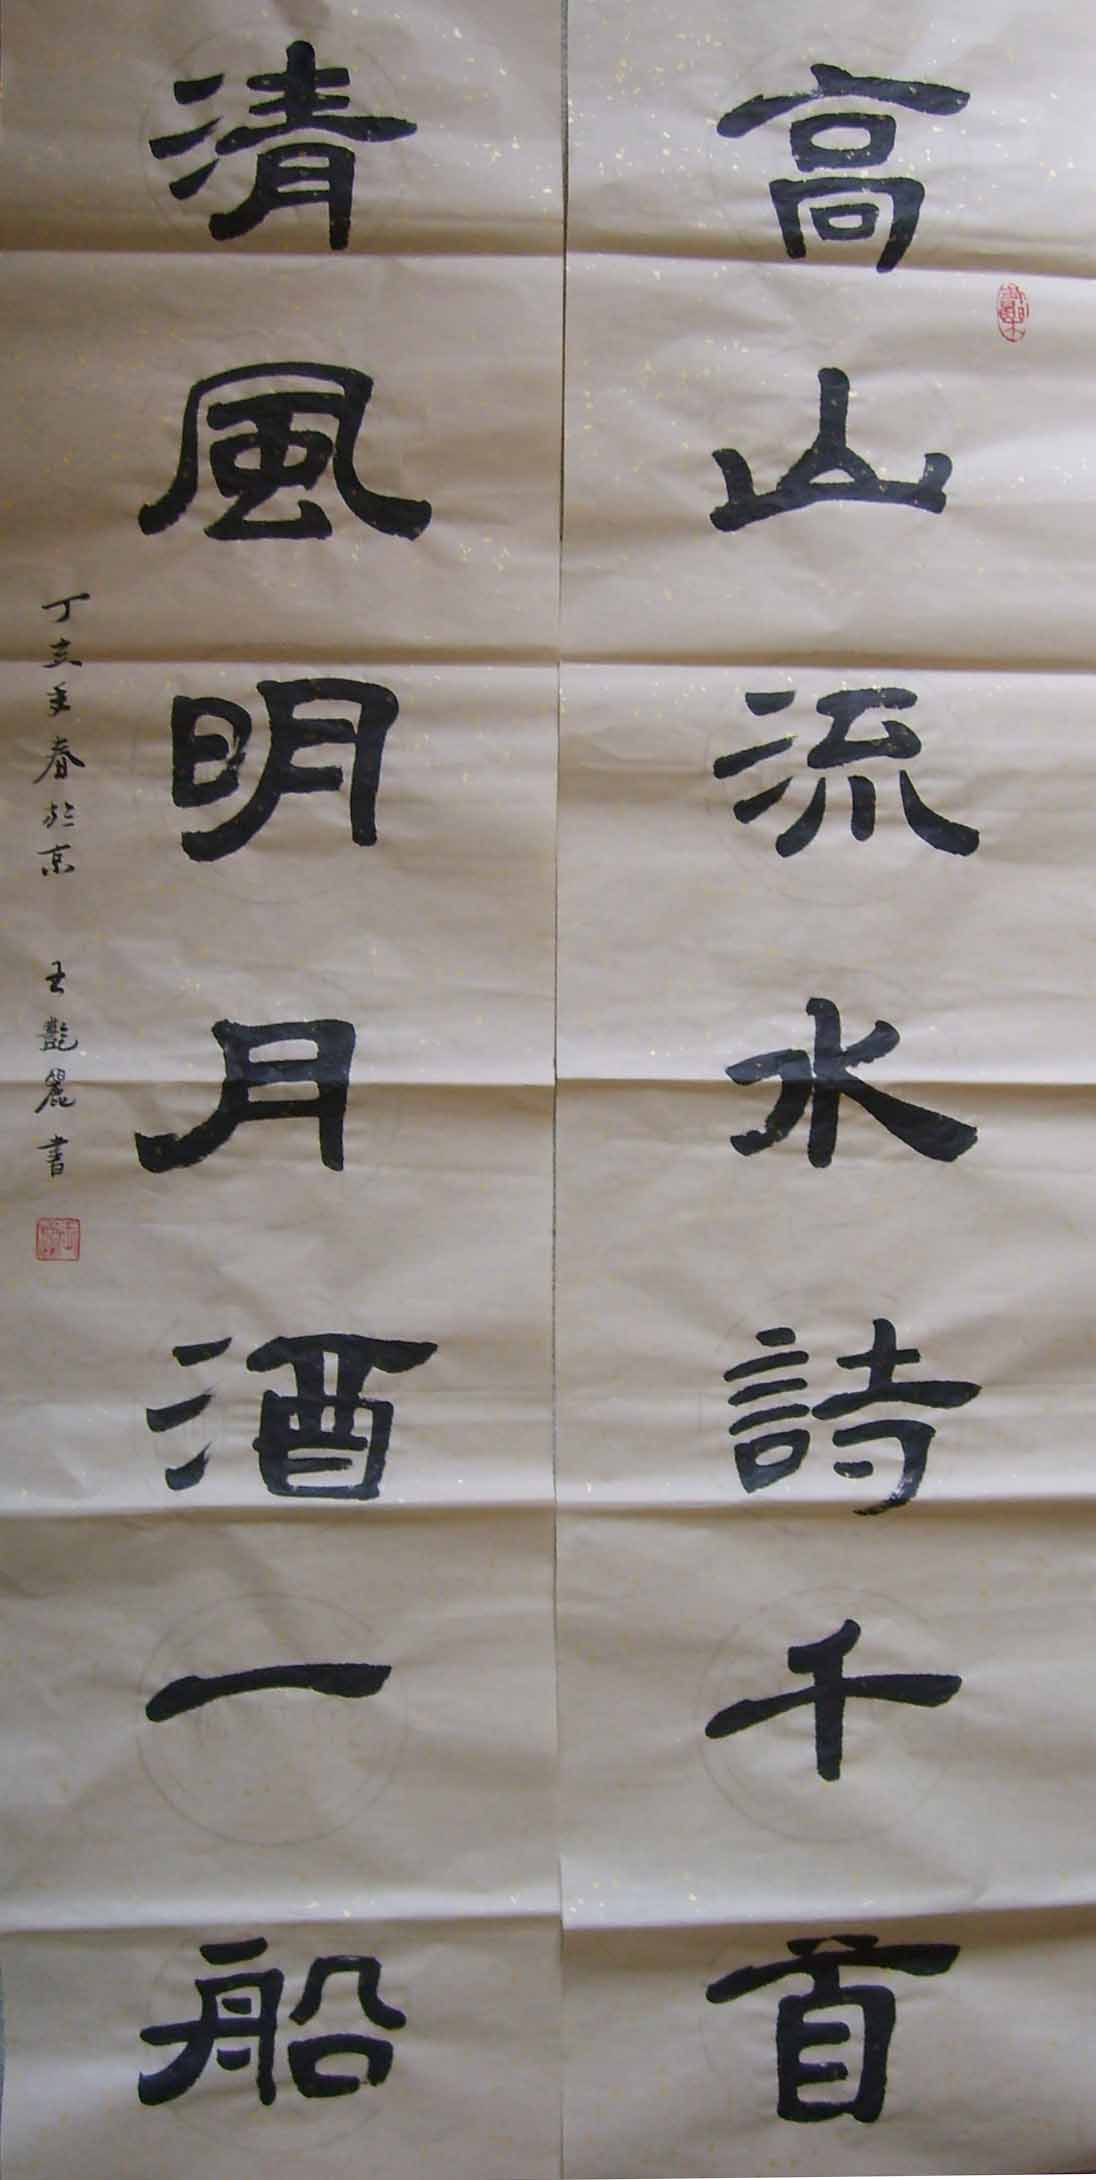 高山流水詩千首
清風明月酒一船
丁亥年春於京 王艷麗書